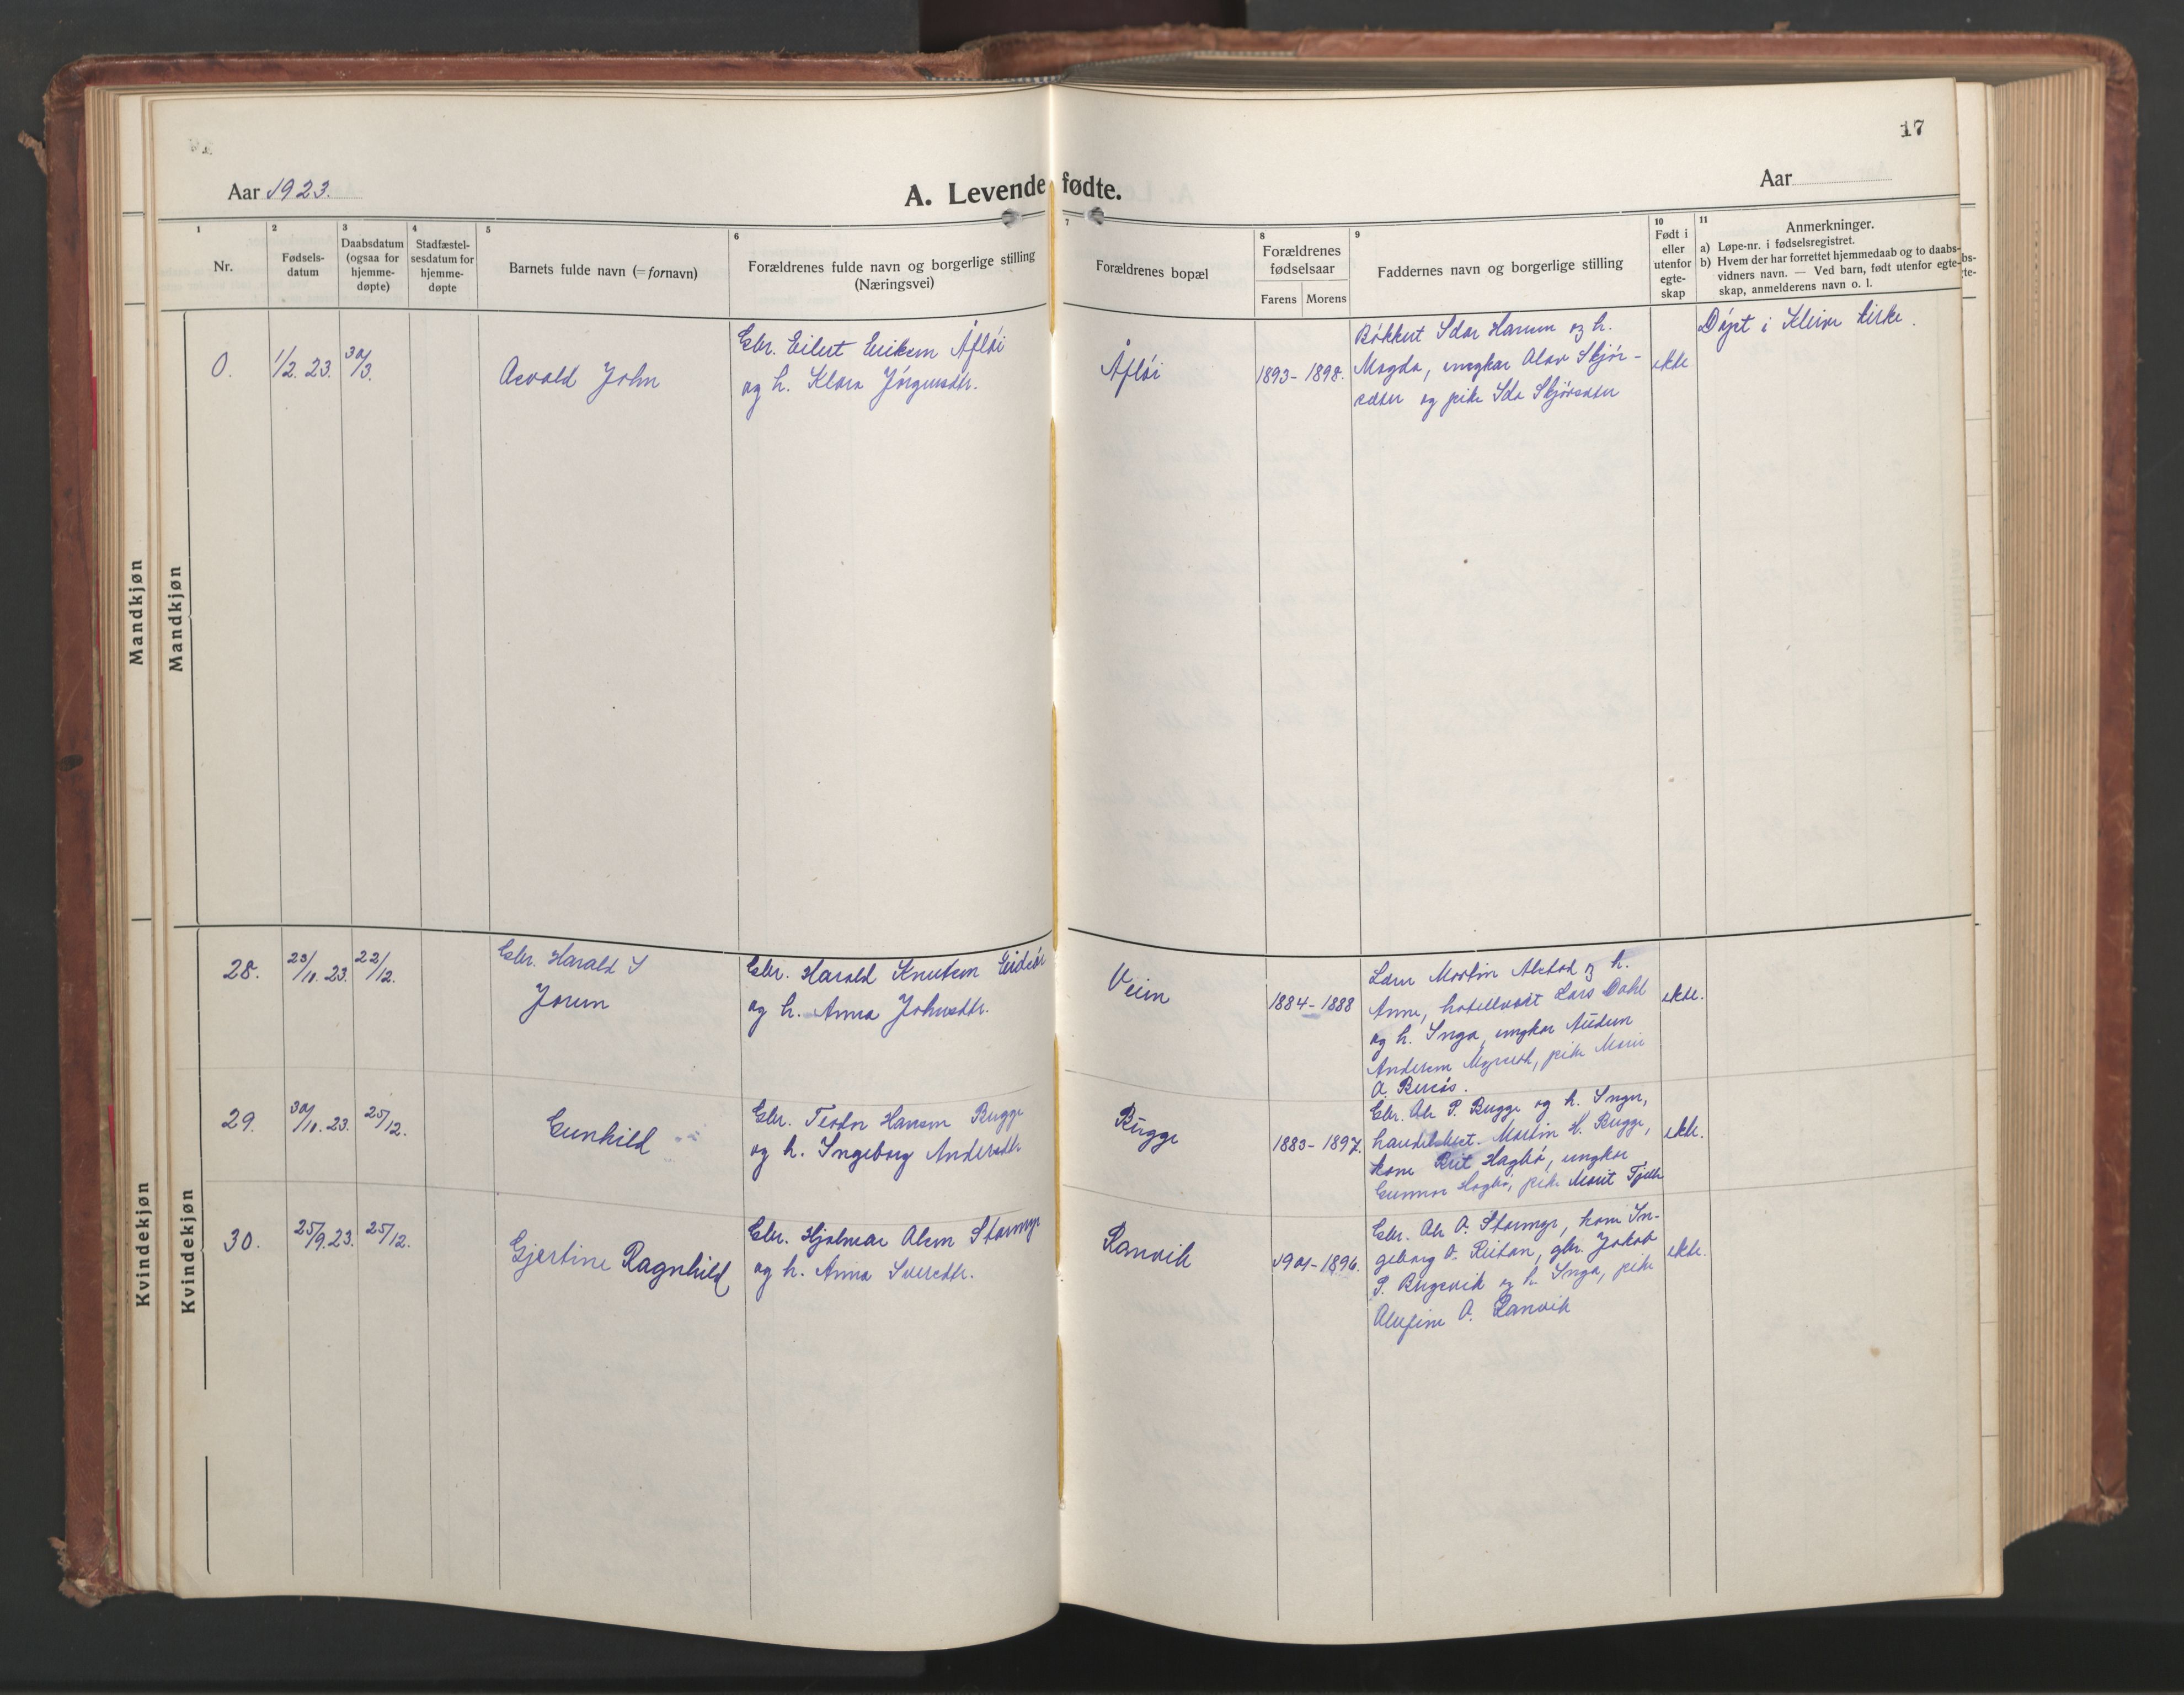 17
Aar 1923.
A. Levende fødte.
Aar
1
Nr.
2
Fødsels-
datum
3
Daabsdatum
(ogsaa for
hjemme-
døpte)
4
Stadfæstel-
sesdatum for
hjemme-
døpte
5
Barnets fulde navn (= fornavn)
6
Forældrenes fulde navn og borgerlige stilling
(Næringsvei)
7
Forældrenes bopæl
8
Forældrenes
fødselsaar
Farens Morens
9
Faddernes navn og borgerlige stilling
10
Født i
eller
utenfor
egte-
skap
11
Anmerkninger.
a) Løpe-nr. i fødselsregistret.
b) Hvem der har forrettet hjemmedaab og to daabs-
vidners navn. — Ved barn, født utenfor egte-
skap, anmelderens navn o. l.
bs-
te-
Mandkjøn
Mandkjøn
0.
1/2. 23.
30/3.
Asvald John
Gbr. Eilert Eriksen Åfløi
og h. Klara Jørgensdtr.
Åfløi
1893 - 1898.
Idar Hansen og h.
Magda, ungkar Olav Skjør-
sæter og pike Ida Skjørsæter
ekte
Døpt i Kleive kirke.
Kvindekjøn
Kvindekjøn
28.
23/11. 23.
22/12.
Gbr. Harald I
Jorun
Gbr. Harald Knutsen
og h. Anna Johnsdtr.
1884 - 1888
Martin og h.
Anne, hotellvært Lars Dahl
og h. Inga, ungkar Audun
Andersen pike
A.
ekte.
29.
30/11. 23.
25/12.
Gunhild
Gbr. Teodor Hansen Bugge
og h. Ingeborg Andersdtr
Bugge
1883 - 1897.
Gbr. Ole P. Bugge og h. Inger,
handelsbest. Martin H. Bugge,
kone Brit Hagbø, ungkar
Gunnar Hagbø, pike Marit
ekte.
30.
25/9. 23.
25/12.
Gjertine Ragnhild
Gbr. Hjalmar Olsen Stormyr
og h. Anna Sversdtr.
Ranvik
1901 - 1896.
Gbr. Ole O. Stormyr, kone In-
geborg O. Reitan, gbr. Jakob
P. og h. Inga, pike
Olufine O. Ranvik
ekte.